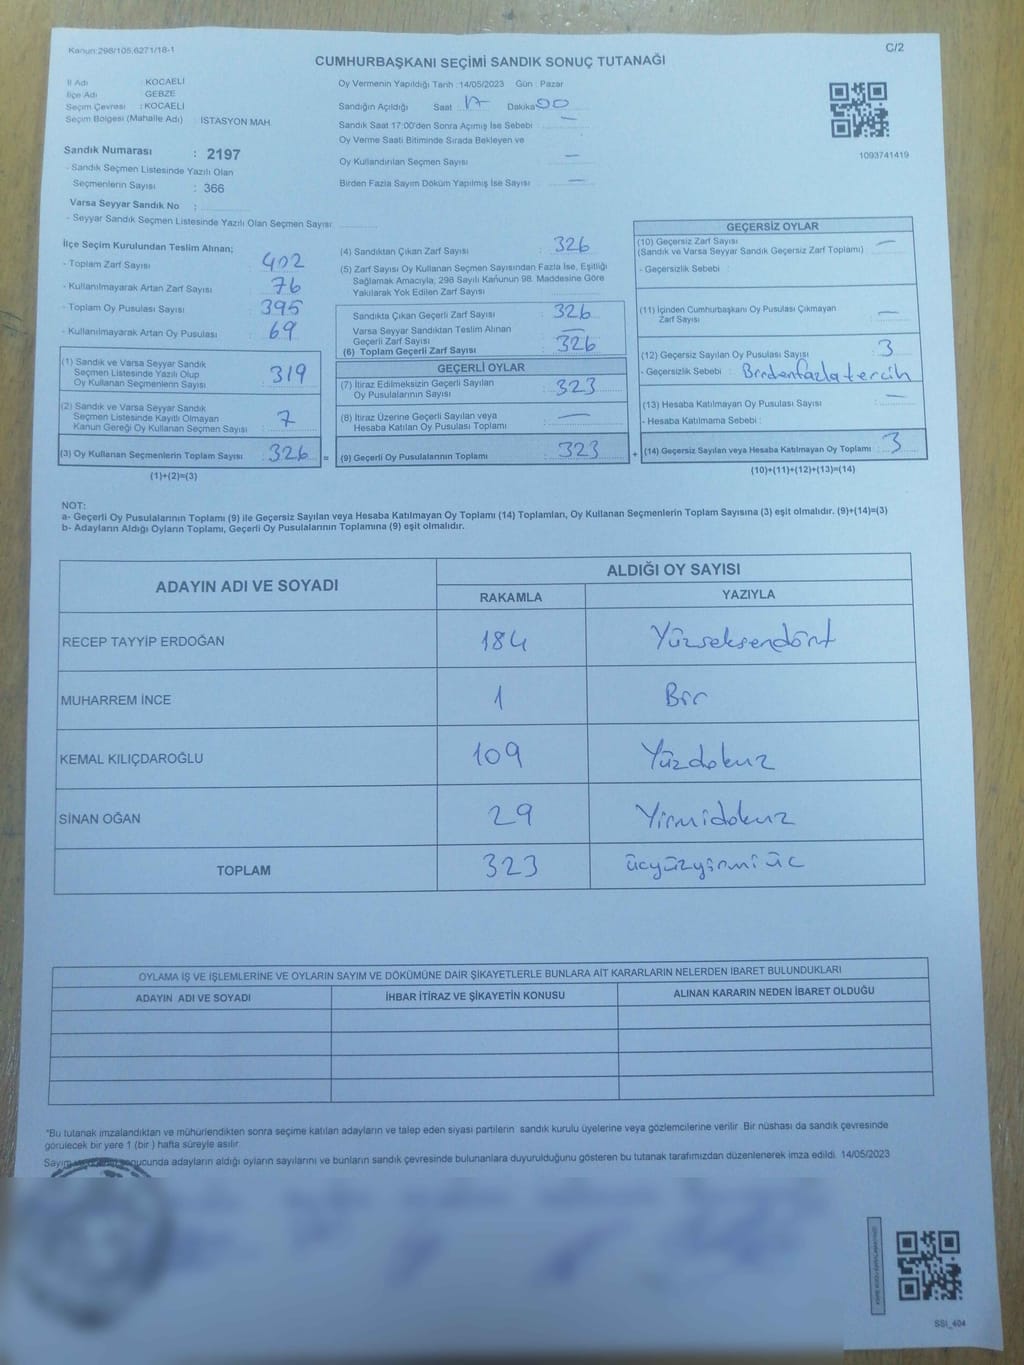 Kanun:298/105,6271/18-1
C/2
CUMHURBAŞKANI SEÇİMİ SANDIK SONUÇ TUTANAĞI
İl Adı KOCAELİ
İlçe Adı GEBZE
Seçim Çevresi : KOCAELİ
Seçim Bölgesi (Mahalle Adı) : İSTASYON MAH.
Sandık Numarası : 2197
- Sandık Seçmen Listesinde Yazılı Olan
Seçmenlerin Sayısı : 366
Varsa Seyyar Sandık No :
- Seyyar Sandık Seçmen Listesinde Yazılı Olan Seçmen Sayısı
Oy Vermenin Yapıldığı Tarih : 14/05/2023 Gün : Pazar
Sandığın Açıldığı Saat : 17 Dakika 00
Sandık Saat 17:00'den Sonra Açımış İse Sebebi : —
Oy Verme Saati Bitiminde Sırada Bekleyen ve
Oy Kullandırılan Seçmen Sayısı —
Birden Fazla Sayım Döküm Yapılmış İse Sayısı —
1093741419
İlçe Seçim Kurulundan Teslim Alınan;
- Toplam Zarf Sayısı : 402
- Kullanılmayarak Artan Zarf Sayısı : 76
- Toplam Oy Pusulası Sayısı : 395
- Kullanılmayarak Artan Oy Pusulası : 69
(1) Sandık ve Varsa Seyyar Sandık
Seçmen Listesinde Yazılı Olup
Oy Kullanan Seçmenlerin Sayısı : 319
(2) Sandık ve Varsa Seyyar Sandık
Seçmen Listesinde Kayıtlı Olmayan
Kanun Gereği Oy Kullanan Seçmen Sayısı : 7
(3) Oy Kullanan Seçmenlerin Toplam Sayısı : 326 =
(1)+(2)=(3)
(4) Sandıktan Çıkan Zarf Sayısı : 326
(5) Zarf Sayısı Oy Kullanan Seçmen Sayısından Fazla İse, Eşitliği
Sağlamak Amacıyla, 298 Sayılı Kanunun 98. Maddesine Göre
Yakılarak Yok Edilen Zarf Sayısı :
Sandıkta Çıkan Geçerli Zarf Sayısı : 326
Varsa Seyyar Sandıktan Teslim Alınan
Geçerli Zarf Sayısı : —
(6) Toplam Geçerli Zarf Sayısı : 326
GEÇERLİ OYLAR
(7) İtiraz Edilmeksizin Geçerli Sayılan
Oy Pusulalarının Sayısı : 323
(8) İtiraz Üzerine Geçerli Sayılan veya
Hesaba Katılan Oy Pusulası Toplamı : —
(9) Geçerli Oy Pusulalarının Toplamı : 323 +
GEÇERSİZ OYLAR
(10) Geçersiz Zarf Sayısı : —
(Sandık ve Varsa Seyyar Sandık Geçersiz Zarf Toplamı)
- Geçersizlik Sebebi :
(11) İçinden Cumhurbaşkanı Oy Pusulası Çıkmayan
Zarf Sayısı : —
(12) Geçersiz Sayılan Oy Pusulası Sayısı : 3
- Geçersizlik Sebebi : Birdenfazla tercih
(13) Hesaba Katılmayan Oy Pusulası Sayısı : —
- Hesaba Katılmama Sebebi :
(14) Geçersiz Sayılan veya Hesaba Katılmayan Oy Toplamı : 3
(10)+(11)+(12)+(13)=(14)
NOT:
a- Geçerli Oy Pusulalarının Toplamı (9) ile Geçersiz Sayılan veya Hesaba Katılmayan Oy Toplamı (14) Toplamları, Oy Kullanan Seçmenlerin Toplam Sayısına (3) eşit olmalıdır. (9)+(14)=(3)
b- Adayların Aldığı Oyların Toplamı, Geçerli Oy Pusulalarının Toplamına (9) eşit olmalıdır.
ADAYIN ADI VE SOYADI
ALDIĞI OY SAYISI
RAKAMLA YAZIYLA
RECEP TAYYİP ERDOĞAN 184 Yüzseksendört
MUHARREM İNCE 1 Bir
KEMAL KILIÇDAROĞLU 109 Yüzdokuz
SİNAN OĞAN 29 Yirmidokuz
TOPLAM 323 üçyüzyirmiüç
OYLAMA İŞ VE İŞLEMLERİNE VE OYLARIN SAYIM VE DÖKÜMÜNE DAİR ŞİKAYETLERLE BUNLARA AİT KARARLARIN NELERDEN İBARET BULUNDUKLARI
ADAYIN ADI VE SOYADI İHBAR İTİRAZ VE ŞİKAYETİN KONUSU ALINAN KARARIN NEDEN İBARET OLDUĞU
*Bu tutanak imzalandıktan ve mühürlendikten sonra seçime katılan adayların ve talep eden siyasi partilerin sandık kurulu üyelerine veya gözlemcilerine verilir. Bir nüshası da sandık çevresinde
görülecek bir yere 1 (bir ) hafta süreyle asılır.
Sayım sonucunda adayların aldığı oyların sayılarını ve bunların sandık çevresinde bulunanlara duyurulduğunu gösteren bu tutanak tarafımızdan düzenlenerek imza edildi. 14/05/2023
SSI_404